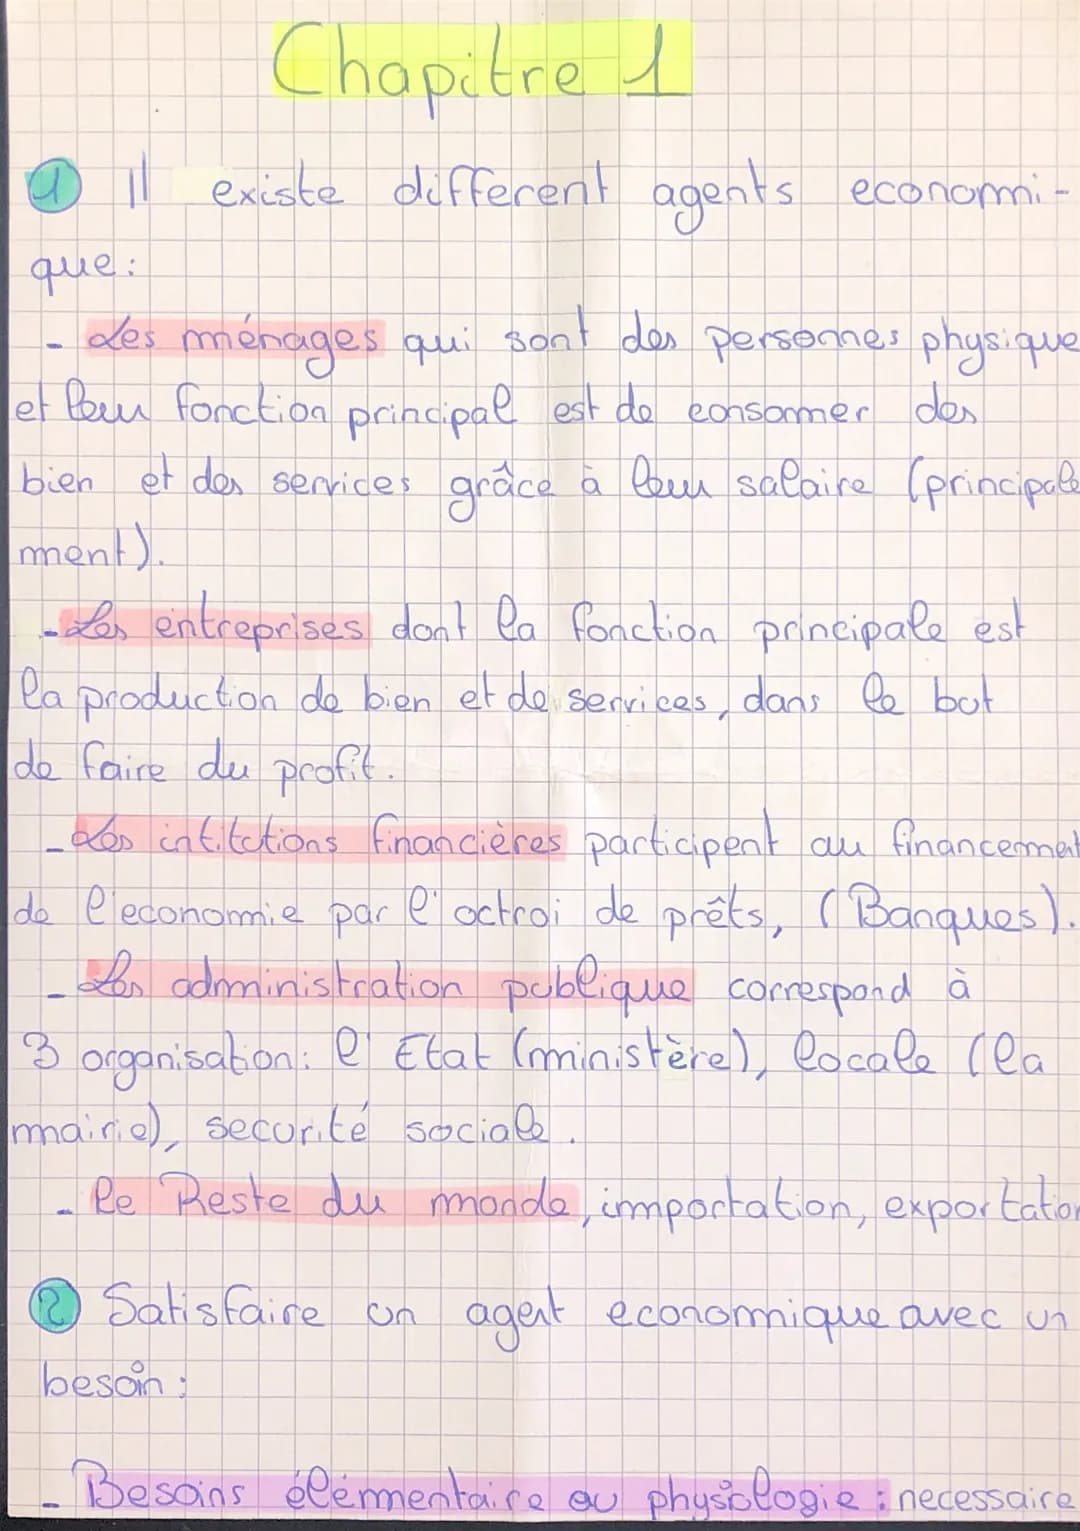 Chapitre 1
① Il existe different agents economi-
que:
- Les ménages qui sont des personnes physique
et leur fonction principal est de consommer des
bien et des services grâce à leur salaire (principale
ment).
- Les entreprises dont la fonction principale est
la production de bien et de services, dans le but
de faire du profit.
- Les intitutions financières participent au financement
de l'economie par l'octroi de prêts, (Banques).
- Les administration publique correspond à
3 organisation: l'Etat (ministère), locale (la
mairie), securité sociale.
- le Reste du monde, importation, exportation
② Satisfaire un agent economique avec un
besoin:
- Besoins élémentaire ou physiologie: necessaire